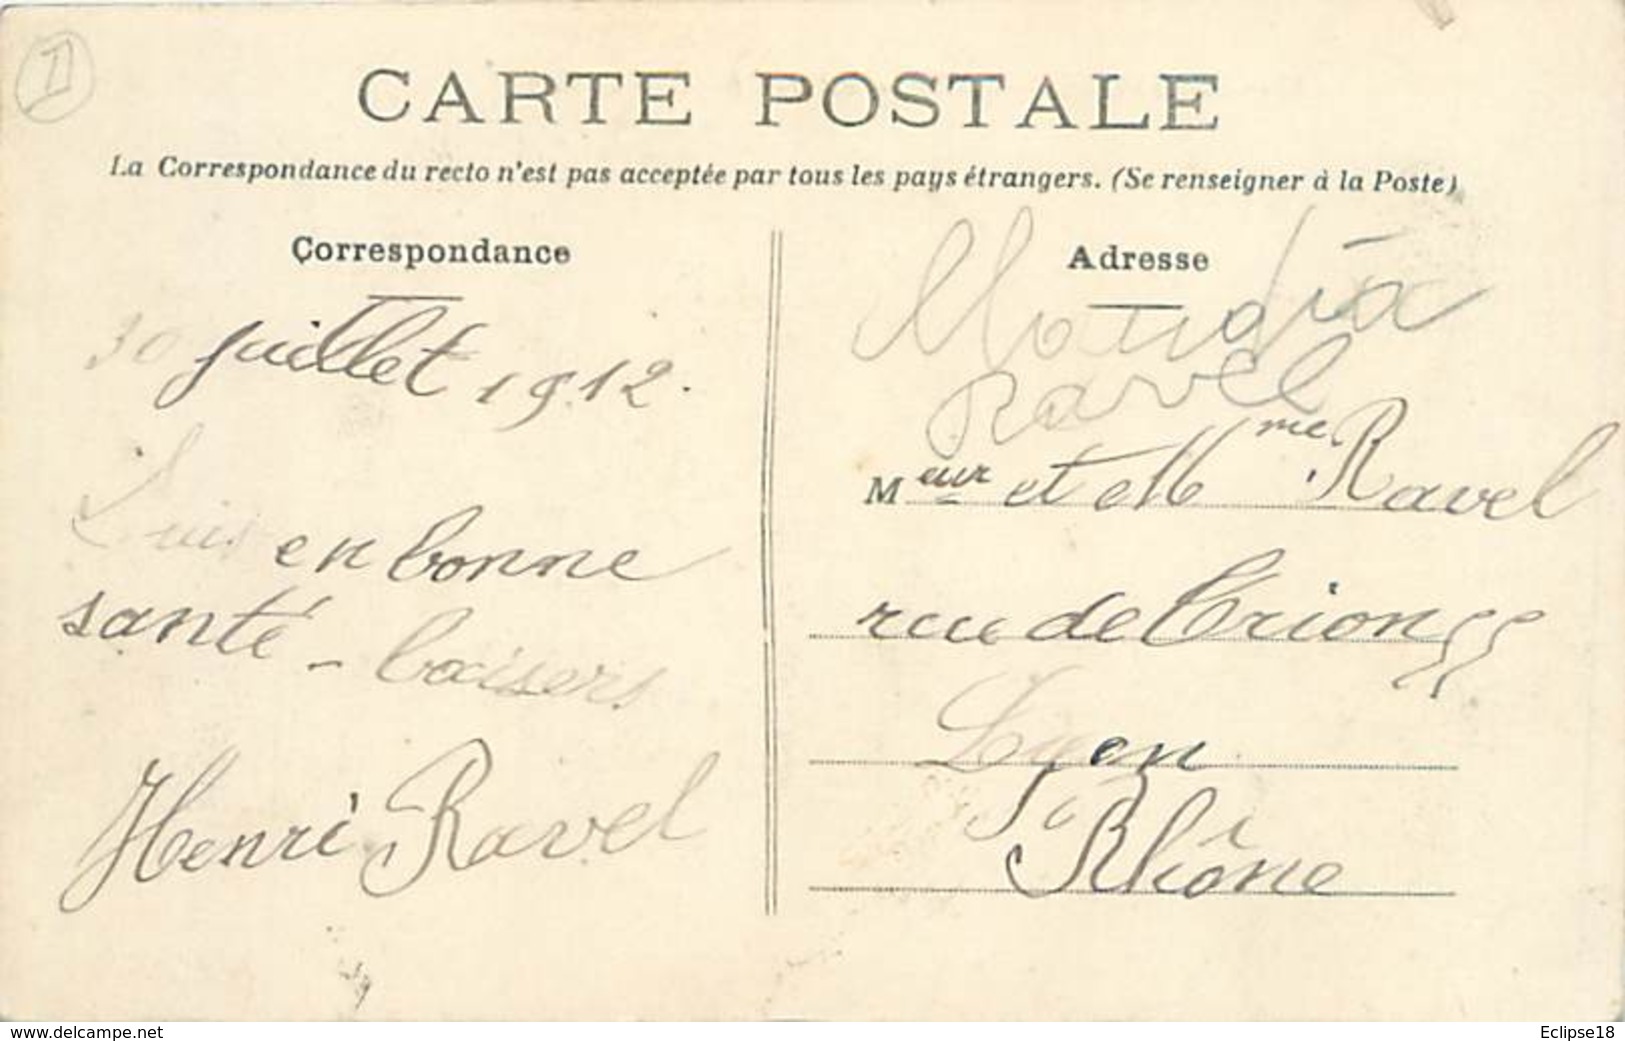 CARTE POSTALE
La Correspondance du recto n'est pas acceptée par tous les pays étrangers. (Se renseigner à la Poste)
Correspondance
30 juillet 1912.
Suis en bonne
santé - baisers
Henri Ravel
Adresse
Ravel
Meur et Mme Ravel
rue de Crion 55
Lyon
Rhône
www.delcampe.net
Eclipse18